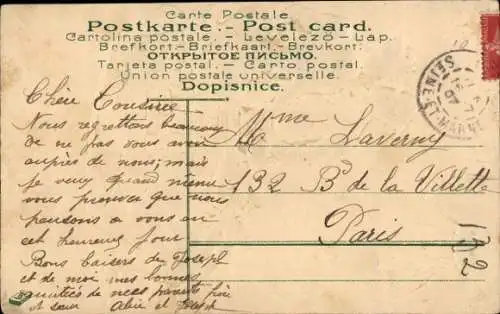 Carte Postale
Postkarte. - Post card.
Cartolina postale. - Levelező - Lap.
Brefkort.-Briefkaart.-Brevkort.
ОТКРЫТОЕ ПИСЬМО.
Tarjeta postal. - Carto postal.
Union postale universelle.
Dopisnice.
SEINE-ET-MARNE
Chère Cousine
Nous regrettons beaucoup
de ne pas vous avoir
auprès de nous; mais
je veux quand même
vous prouver que nous
pensons a vous en
cet heureux jour
Bons baisers de Joseph
et de moi mes bonnes
amitiés de nos parents frère
et sœur
Mme Laverny
132 Bd de la Villette
Paris
132